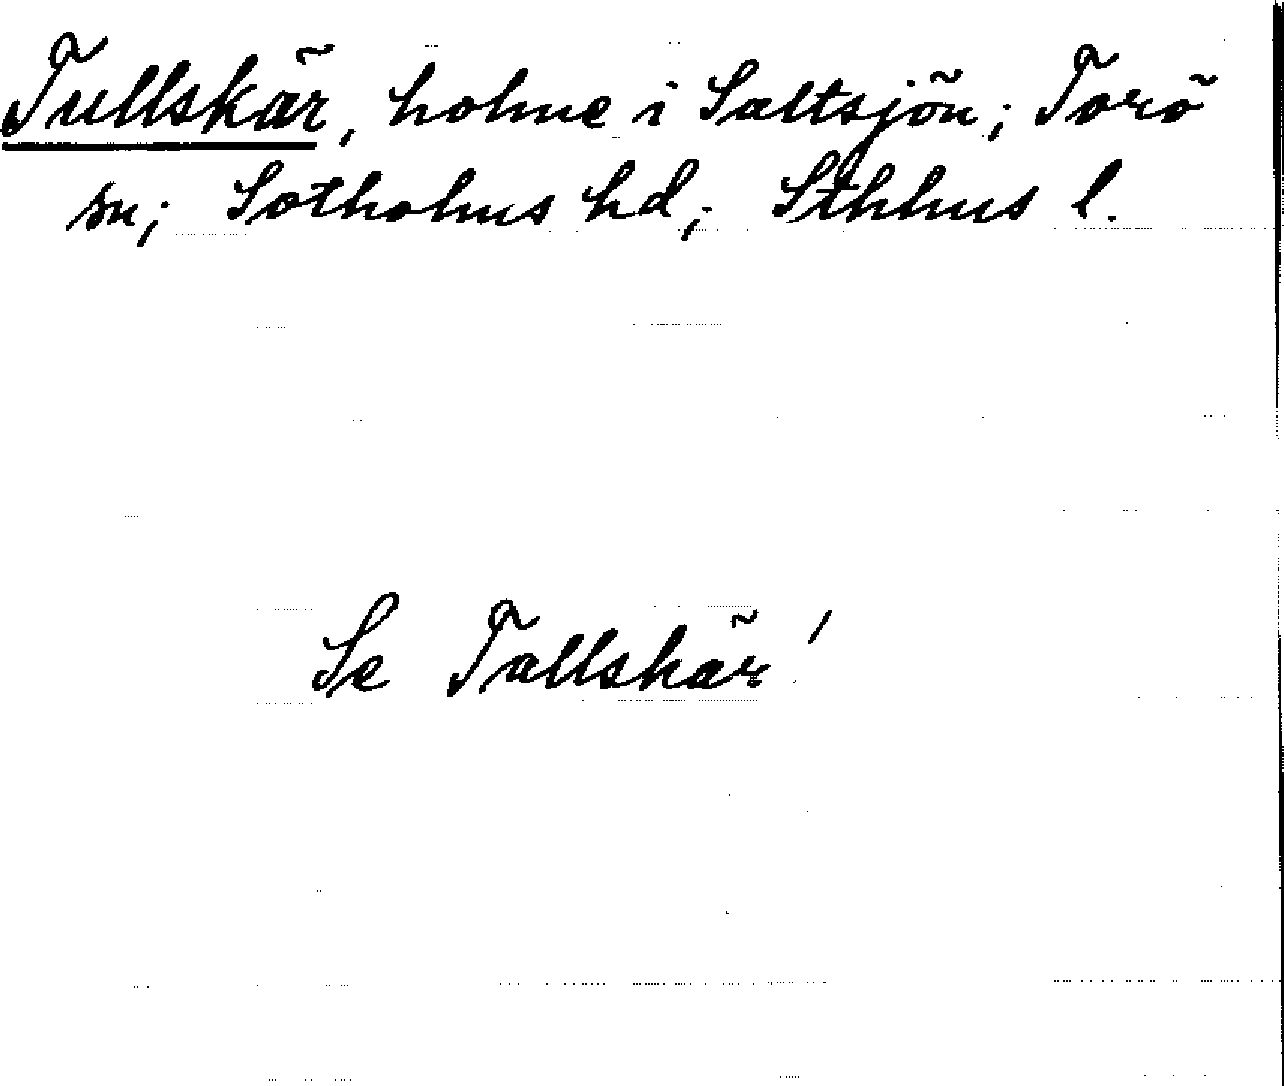 Tullskär, holme i Saltsjön; Torö
sn; Sotholms hd; Sthlms l.
Se Tallskär!